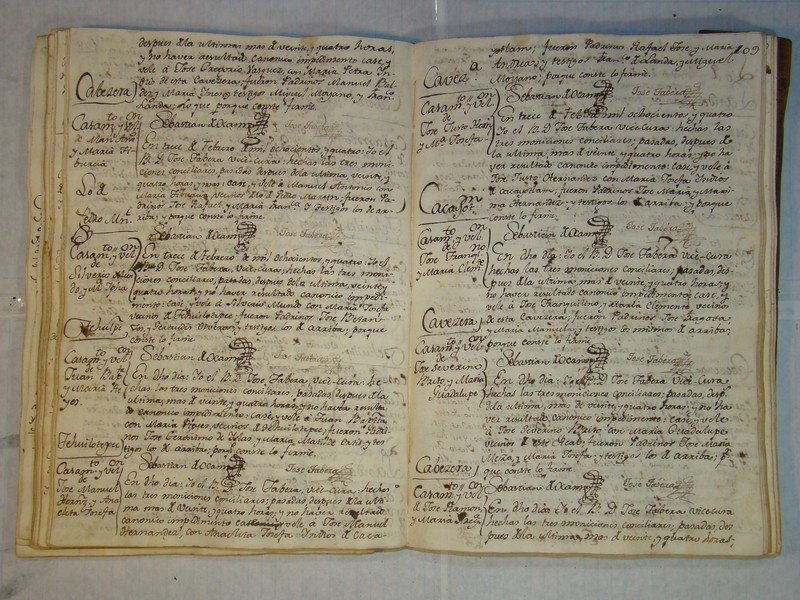 despues dla ultima mas d veinte, y quatro horas,
y no haver resultado canonico impedimento case, y
velé á Jose Gregorio Vasquez, con Maria Petra In-
dios de esta Cavezera; fueron Padrinos Manuel
y Maria testigos Miguel Moyano, y Fran.
Landa; y porque conste lo firmé.
Cabezera
Sebastian dOcampo Jose Fabera
Casam.to y vel.on
de Man.l Ant.o
y Maria Ti-
burcia
En trece d Febrero d mil ochocientos, y quatro: Yo el
B.r D. Jose Fabera Vice-cura: hechas las tres moni-
ciones conciliares, pasadas despues dla ultima veinte, y
quatro horas, y mas: casé, y velé á Manuel Antonio con
Maria Tiburcia Vecinos d S. Pedro Martir; fueron Pa-
drinos Jose Rafael, y Maria Fran.ca y testigos los d ar-
riba; y porque conste lo firmé.
Sebastian dOcampo Jose Fabera
Casam.to y vel.on
de
Silverio Mun-
do, y M.a Jpha
En trece d Febrero de mil ochocientos, y quatro: Yo el
B.r D. Jose Fabera, Vice-cura; hechas las tres moni-
ciones conciliares, pasadas, despues dla ultima, veinte, y
quatro horas, y no haver resultado canonico impedi-
mento: case, y velé á Silverio Mundo con Maria Josefa
Vecinos d Tehuilotepec; fueron Padrinos Jose
y Gertrudis testigos los d arriba; porque
conste lo firmé.
Sebastian dOcampo Jose Fabera
Casam.to y vel.on
de
Juan Bap.ta
y Maria Re-
yes.
En dho dia: Yo el B.r D. Jose Fabera, vice-cura: he-
chas las tres moniciones conciliares, pasadas, despues dla
ultima, mas d veinte, y quatro horas, y no haver resulta-
do canonico impedimento: case, y velé á Juan Baptta
con Maria Reyes, Vecinos d Tehuilotepec; fueron Padri-
nos Jose Geronimo de Islas y Maria Matilde tes-
tigos los d arriba, porq. conste lo firmé.
Tehuilotepec
Sebastian dOcampo Jose Fabera
Casam.to y vel.on
de
Jose Manuel
Hern.z y Ana-
cleta Josefa
En dho dia: Yo el B.r D. Jose Fabera, vice-cura: hechas
las tres moniciones conciliares; pasadas despues dla ulti-
ma mas d veinte, y quatro horas; y no haver resultado
canonico impedimento case y velé á Jose Manuel
Hernandez, con Anacleta Josefa Indios d Caca-
109
yotlam; fueron Padrinos Rafael Jose, y Maria
Andrea, y testigos Fran.co dLanda, y Miguel
Moyano; porque conste lo firmé.
Cavez.a
Sebastian dOcampo Jose Fabera
Casam.to y vel.on
de
Jose Justo Hern.z
y M.a Josefa
En trece d Febrero d mil ochocientos, y quatro
Yo el B.r D. Jose Fabera Vice-cura: hechas las
tres moniciones conciliares; pasadas, despues de
la ultima, mas d veinte, y quatro horas; y no ha-
ver resultado canonico impedimento: case, y velé á
Jose Justo Hernandez con Maria Josefa Indios
de Cacayotlan; fueron Padrinos Jose Maria, y Mari-
a Hernandez, y testigos los d arriba, y porque
conste lo firmé.
Sebastian dOcampo Jose Fabera
Casam.to y vel.on
del no
Jose Tranq.
y Maria Clem.
En dho dia: Yo el B.r D. Jose Fabera Vice-cura
hechas las tres moniciones conciliares; pasadas, des-
pues dla ultima, mas de veinte, y quatro horas; y
no haver resultado canonico impedimento; case, y ve-
lé á Jose Tranquilino, y María Clementa Vecinos
de esta Cavezera; fueron Padrinos Jose
y Maria Manuela; y testigos los mismos d arriba;
porque conste lo firmé.
Cavezera
Sebastian dOcampo Jose Fabera
Casam.to y vel.on
de
Jose Severino
Brito, y Maria
Guadalupe
En dho dia: Yo el B.r D. Jose Fabera Vice-cura
hechas las tres moniciones conciliares; pasadas, desp.s
dla ultima, mas de veinte, y quatro horas, y no ha-
ver resultado canonico impedimento: casé, y velé
á Jose Severino Brito con Maria Guadalupe
vecinos d este Real; fueron Padrinos Jose Maria
Meza, y Maria Josefa: y testigos los d arriba; por-
que conste lo firmé.
Cabezera
Sebastian dOcampo Jose Fabera
Casam.to y vel.on
d Jose Ramon,
y Maria
En dho dia: Yo el B.r D. Jose Fabera Vice-cura
hechas las tres moniciones conciliares; pasadas, des-
pues dla ultima, mas d veinte, y quatro horas;